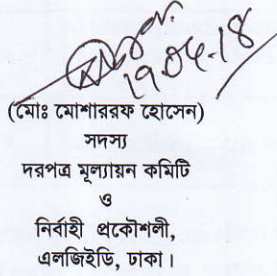 19.04.18
(মোঃ মোশাররফ হোসেন)
সদস্য
দরপত্র মূল্যায়ন কমিটি
ও
নির্বাহী প্রকৌশলী,
এলজিইডি, ঢাকা।